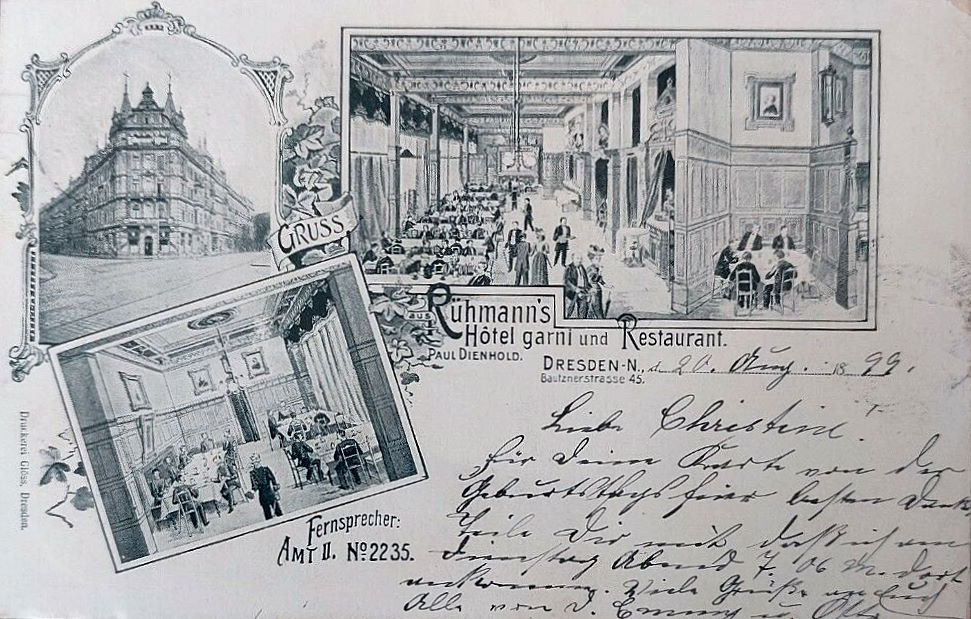 GRUSS
aus Rühmann's
Hôtel garni und Restaurant.
PAUL DIENHOLD.
DRESDEN-N., d. 20. Aug. 1899.
Bautznerstrasse 45.
Fernsprecher:
AMT II. No 2235.
Druckerei Glöss, Dresden.
Liebe Christine.
für Deine Karte von der
Geburtstagsfeier besten Dank
teile Dir mit, daß ich am
Dienstag Abend 7.06 M. dort
ankomme. Viele Grüße an Euch
Alle von D. Emmy u. Otto